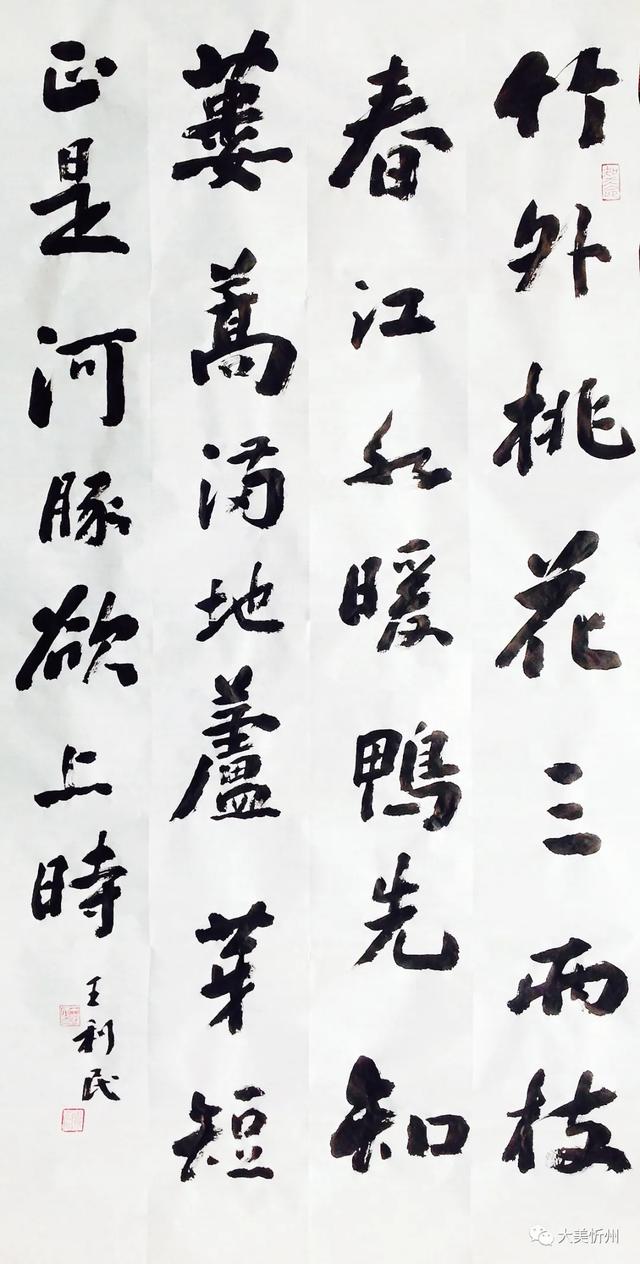 竹外桃花三兩枝
春江水暖鴨先知
蔞蒿满地蘆芽短
正是河豚欲上時
王利民
大美忻州